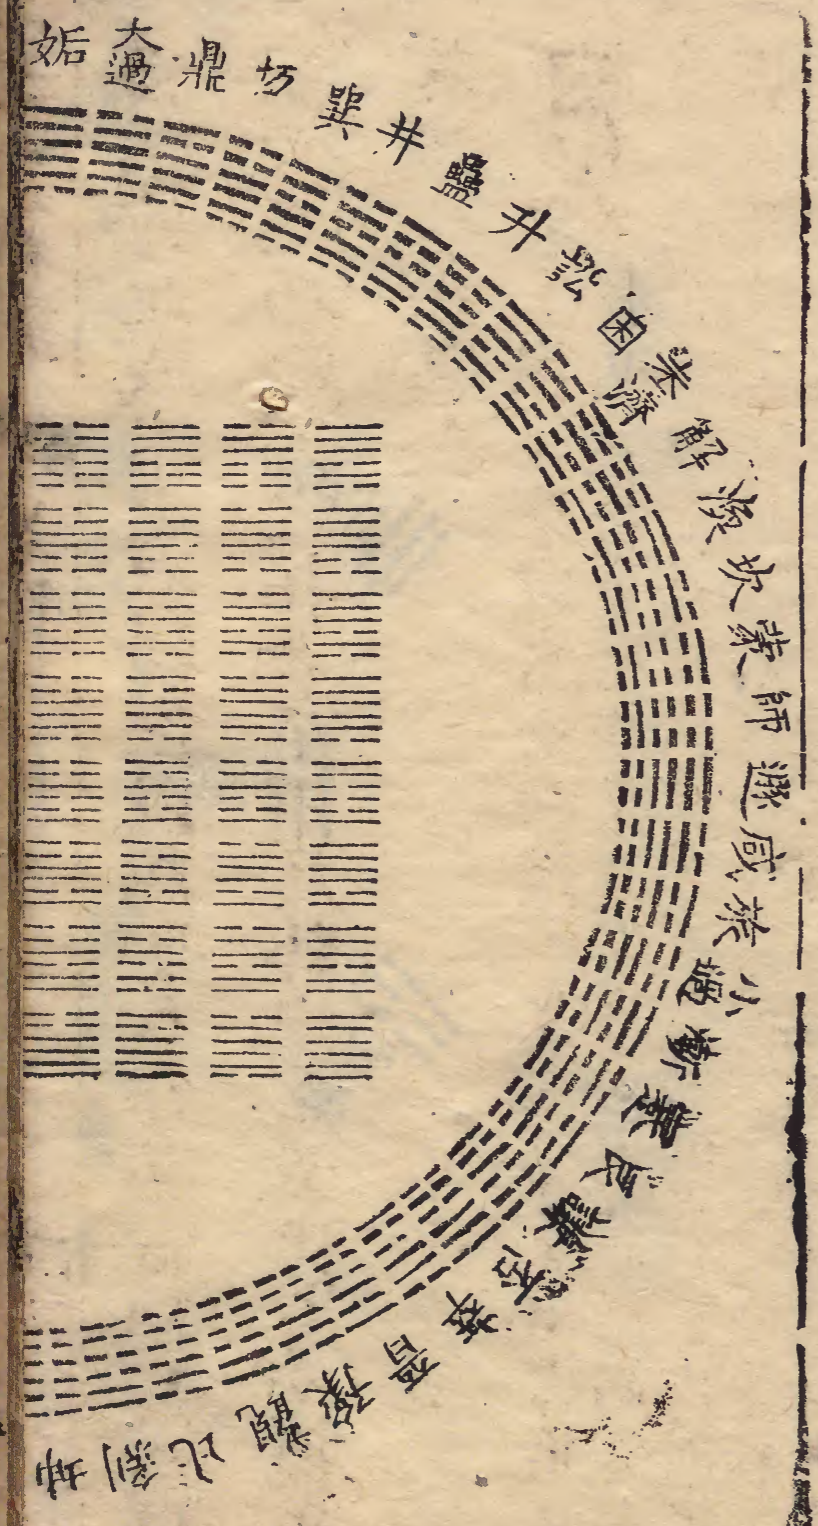 姤
大過
鼎
巽
井
蠱
升
訟
困
未濟
解
渙
坎
蒙
師
遯
咸
旅
小過
漸
蹇
艮
謙
否
萃
晉
豫
觀
比
剝
坤